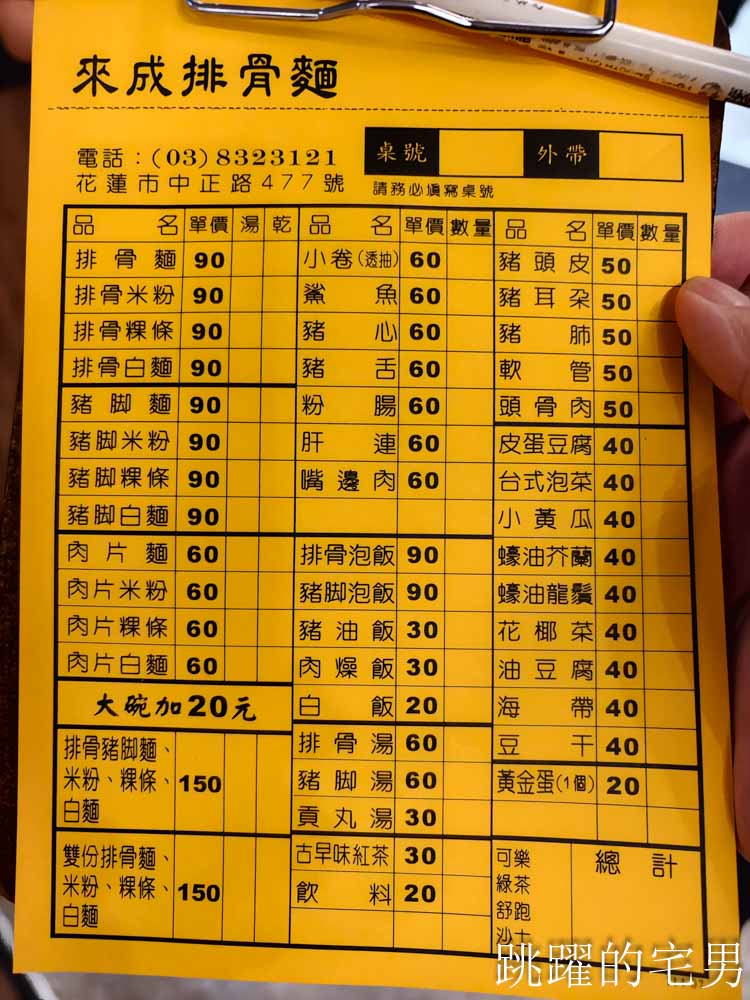 來成排骨麵
電話：(03)8323121
花蓮市中正路477號
桌號 外帶
請務必填寫桌號
品名 單價 湯 乾
排骨麵 90
排骨米粉 90
排骨粿條 90
排骨白麵 90
豬腳麵 90
豬腳米粉 90
豬腳粿條 90
豬腳白麵 90
肉片麵 60
肉片米粉 60
肉片粿條 60
肉片白麵 60
大碗加20元
排骨豬腳麵、
米粉、粿條、 150
白麵
雙份排骨麵、
米粉、粿條、 150
白麵
品名 單價 數量
小卷(透抽) 60
鯊魚 60
豬心 60
豬舌 60
粉腸 60
肝連 60
嘴邊肉 60
排骨泡飯 90
豬腳泡飯 90
豬油飯 30
肉燥飯 30
白飯 20
排骨湯 60
豬腳湯 60
貢丸湯 30
古早味紅茶 30
飲料 20
品名 單價 數量
豬頭皮 50
豬耳朵 50
豬肺 50
軟管 50
頭骨肉 50
皮蛋豆腐 40
台式泡菜 40
小黃瓜 40
蠔油芥蘭 40
蠔油龍鬚 40
花椰菜 40
油豆腐 40
海帶 40
豆干 40
黃金蛋(1個) 20
可樂
綠茶
舒跑
沙士
總計
跳躍的宅男